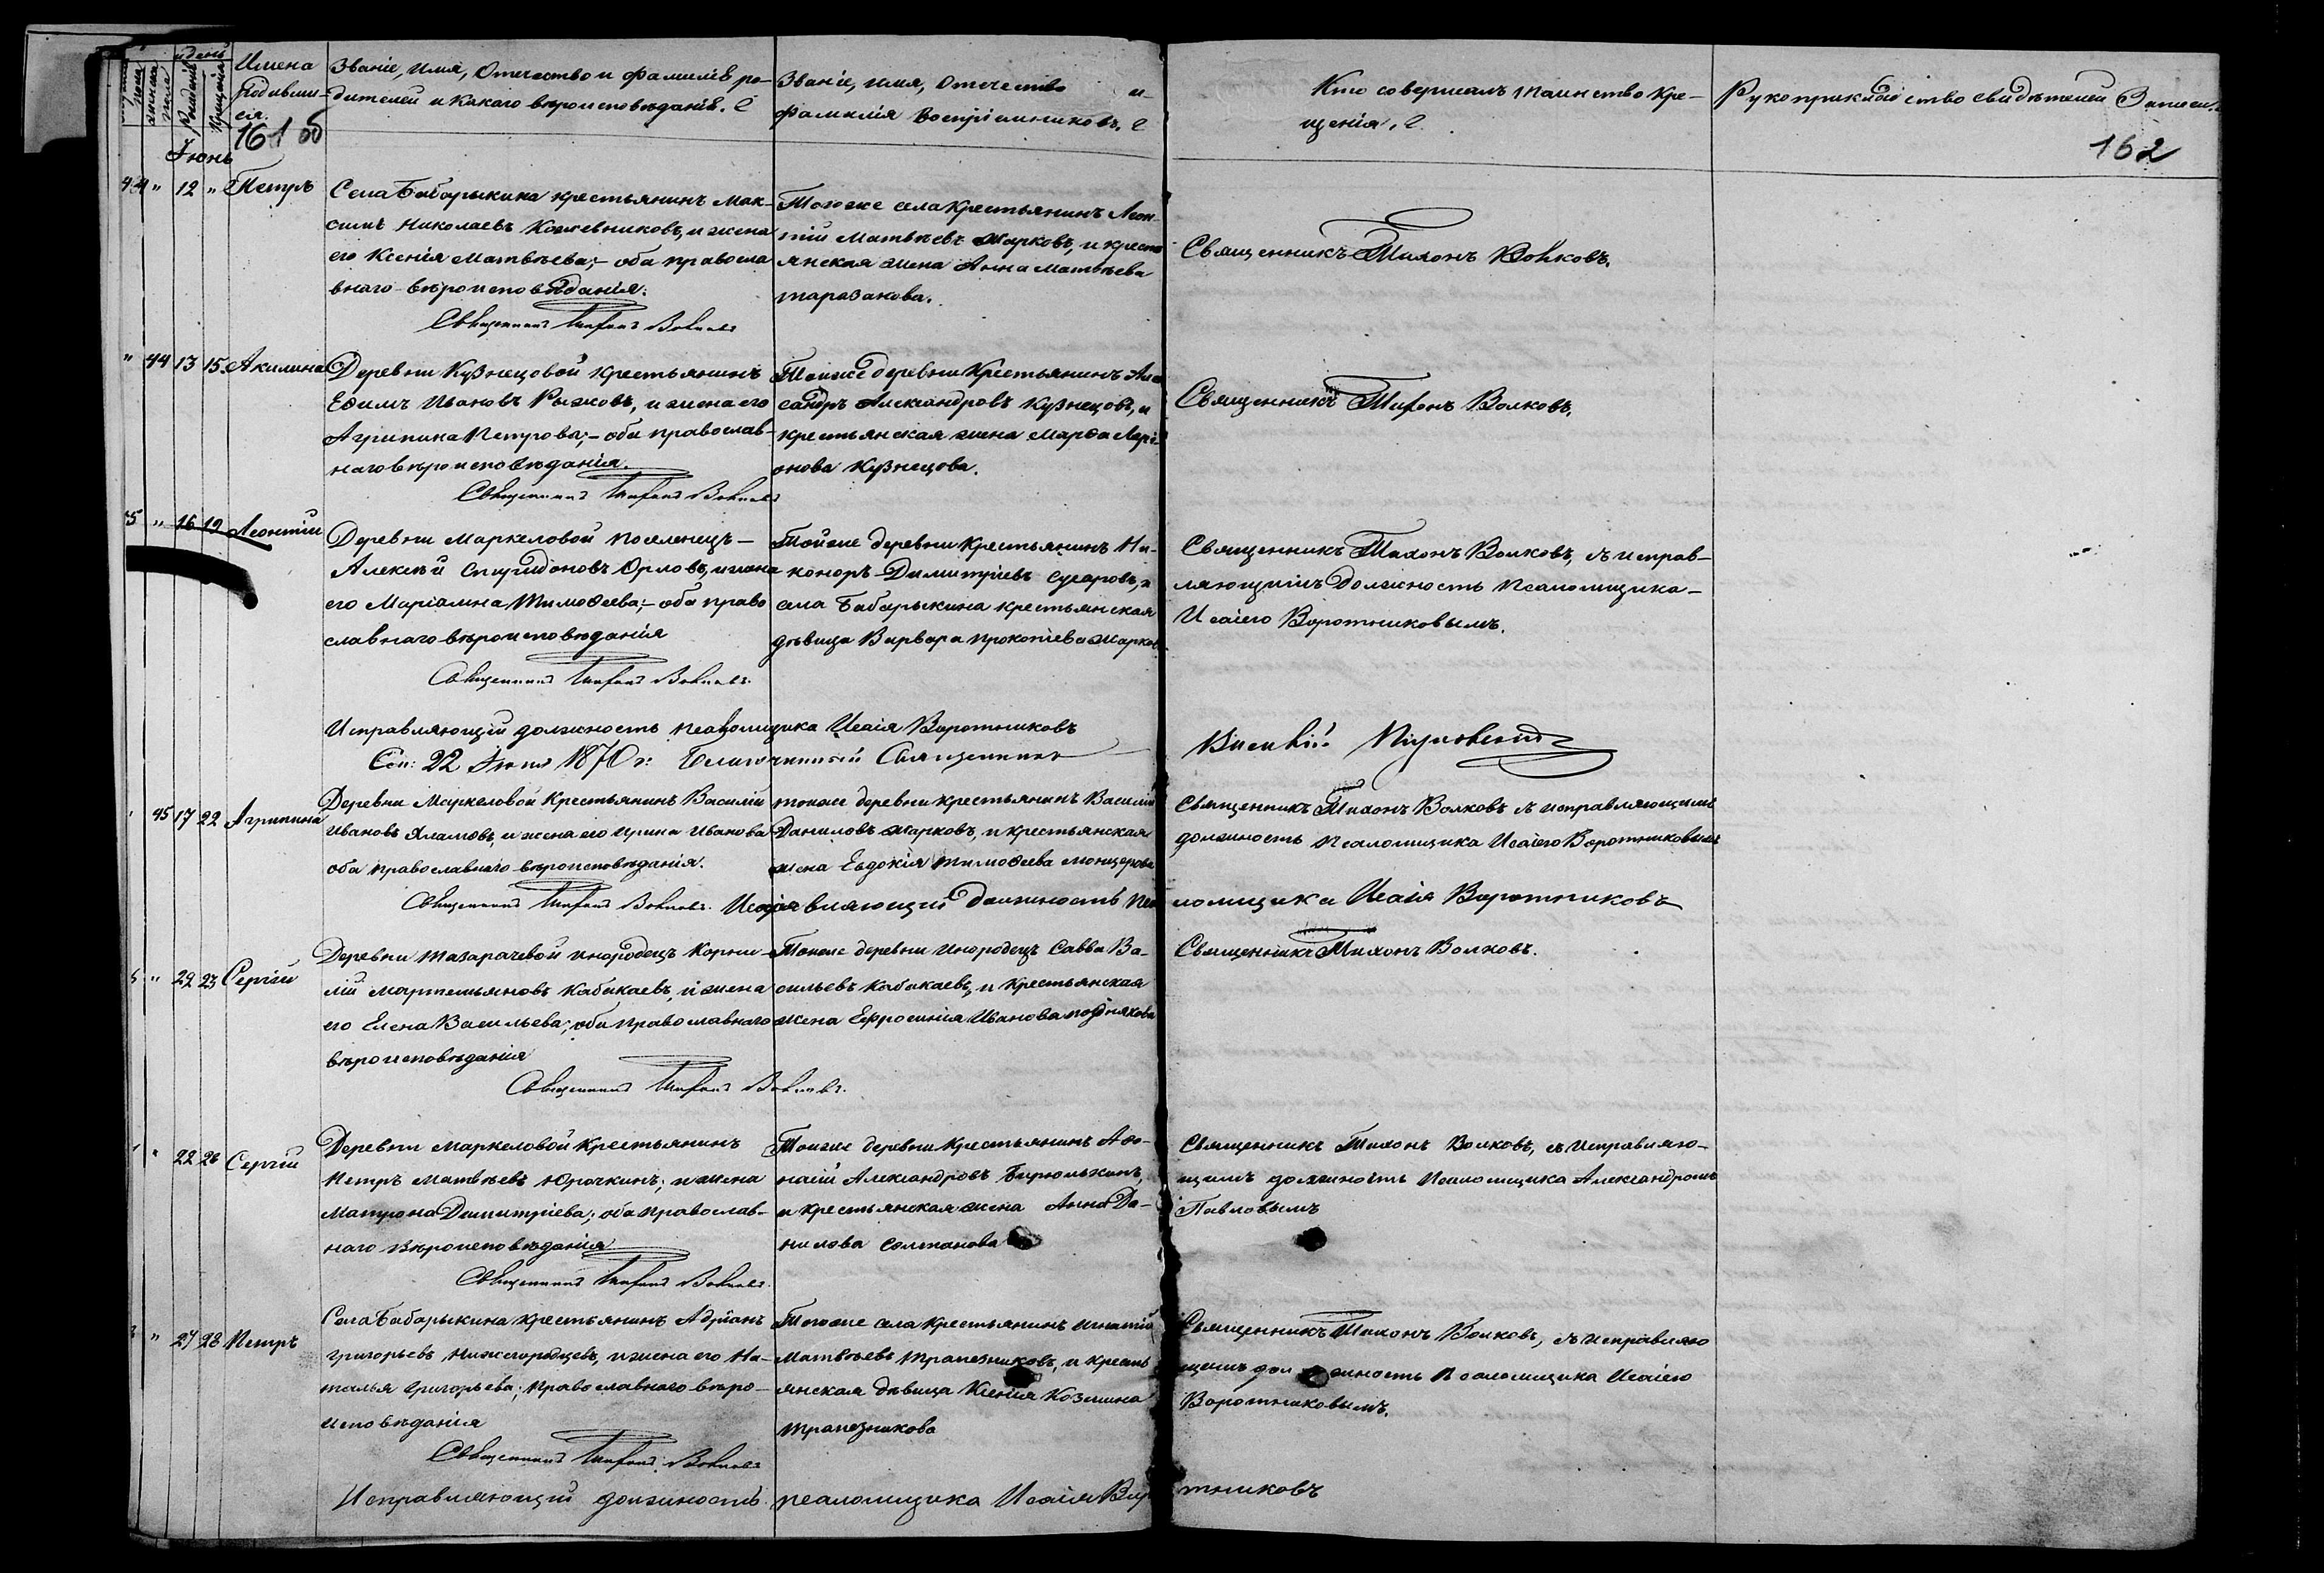 Имена
родивши-
еся.
Званіе, Имя, Отечество и фамилія ро-
дителей и какаго вѣроисповѣданія.
Званіе, имя, Отечество и
фамилія Воспріемниковъ.
Кто совершалъ таинство Кре-
щенія.
Рукоприкладство свидѣтелей
161 об
162
Іюнь
44 " 12 " Петръ
Села Бабарыкина крестьянинъ Мак-
симъ Николаевъ Кожевниковъ, и жена
его Ксенія Матвѣева; – оба правосла
внаго вѣроисповѣданія.
Священникъ Тихонъ Волковъ
Тогоже села Крестьянинъ Леон-
тій Матвѣевъ Жарковъ, и кресть
янская жена Анна Матвѣева
Таразанова.
Священникъ Тихонъ Волковъ.
" 44 13 15 Акилина
Деревни Кузнецовой крестьянинъ
Ефимъ Ивановъ Рыжковъ, и жена его
Агрипина Петрова; – оба православ-
наго вѣроисповѣданія.
Священникъ Тихонъ Волковъ
Тойже деревни Крестьянинъ Але
сандръ Александровъ Кузнецовъ, и
крестьянская жена Марфа Лари-
онова Кузнецова.
Священникъ Тихонъ Волковъ.
5 " 16 19 Леонтій
Деревни Маркеловой поселенецъ –
Алексѣй Спиридоновъ Орловъ, и жена
его Маріамна Тимофеева; – оба право
славнаго вѣроисповѣданія
Священникъ Тихонъ Волковъ.
Тойже деревни Крестьянинъ Ни-
коноръ Димитріевъ Сухаровъ, и
села Бабарыкина крестьянская
дѣвица Варвара Прокопіева Жарков
Священникъ Тихонъ Волковъ, съ исправ-
ляющимъ должность псаломщика –
Исаіею Воротниковымъ.
Исправляющій должность псаломщика Исаія Воротниковъ
22 Іюня 1870 г: Благочинный Священникъ
Василій
45 17 22 Агрипина
Деревни Маркеловой Крестьянинъ Василій
Ивановъ Хламовъ, и жена его Ирина Иванова
оба православнаго вѣроисповѣданія.
Священникъ Тихонъ Волковъ.
тоиже деревни крестьянинъ Василій
Даниловъ Жарковъ, и крестьянская
жена Евдокія Тимофеева
Священникъ Тихонъ Волковъ съ исправляющимъ
должность Псаломщика Исаіею Воротниковымъ
Исправляющій должность псаломщика Исаія Воротниковъ
" 22 23 Сергій
Деревни Тазарачевой инородецъ Корни-
лій Мартемьяновъ Кабакаевъ, и жена
его Елена Васильева; оба православнаго
вѣроисповѣданія
Священникъ Тихонъ Волковъ.
Тоиже деревни инородецъ Савва Ва-
сильевъ Кабакаевъ, и крестьянская
жена Ефросинія Иванова Позднякова
Священникъ Тихонъ Волковъ.
" 22 26 Сергій
Деревни Маркеловой Крестьянинъ
Петръ Матвѣевъ Юрочкинъ; и жена
Матрона Димитріева; оба православ-
наго вѣроисповѣданія
Священникъ Тихонъ Волковъ.
Тоиже деревни крестьянинъ Афо-
насій Александровъ Бирюлькинъ,
и крестьянская жена Анна Да-
нилова Солтанова
Священникъ Тихонъ Волковъ, съ исправляю-
щимъ должность Псаломщика Александромъ
Павловымъ
" 27 28 Петръ
Села Бабарыкина крестьянинъ Адріанъ
Григорьевъ Нижегородцевъ, и жена его На-
талья Григорьева; православнаго вѣро-
исповѣданія
Священникъ Тихонъ Волковъ
Тогоже села Крестьянинъ Игнатій
Матвѣевъ Трапезниковъ, и кресть
янская дѣвица Ксенія Козмина
Трапезникова
Священникъ Тихонъ Волковъ, съ исправляю
щимъ должность Псаломщика Исаіею
Воротниковымъ.
Исправляющій должность псаломщика Исаія Воротниковъ